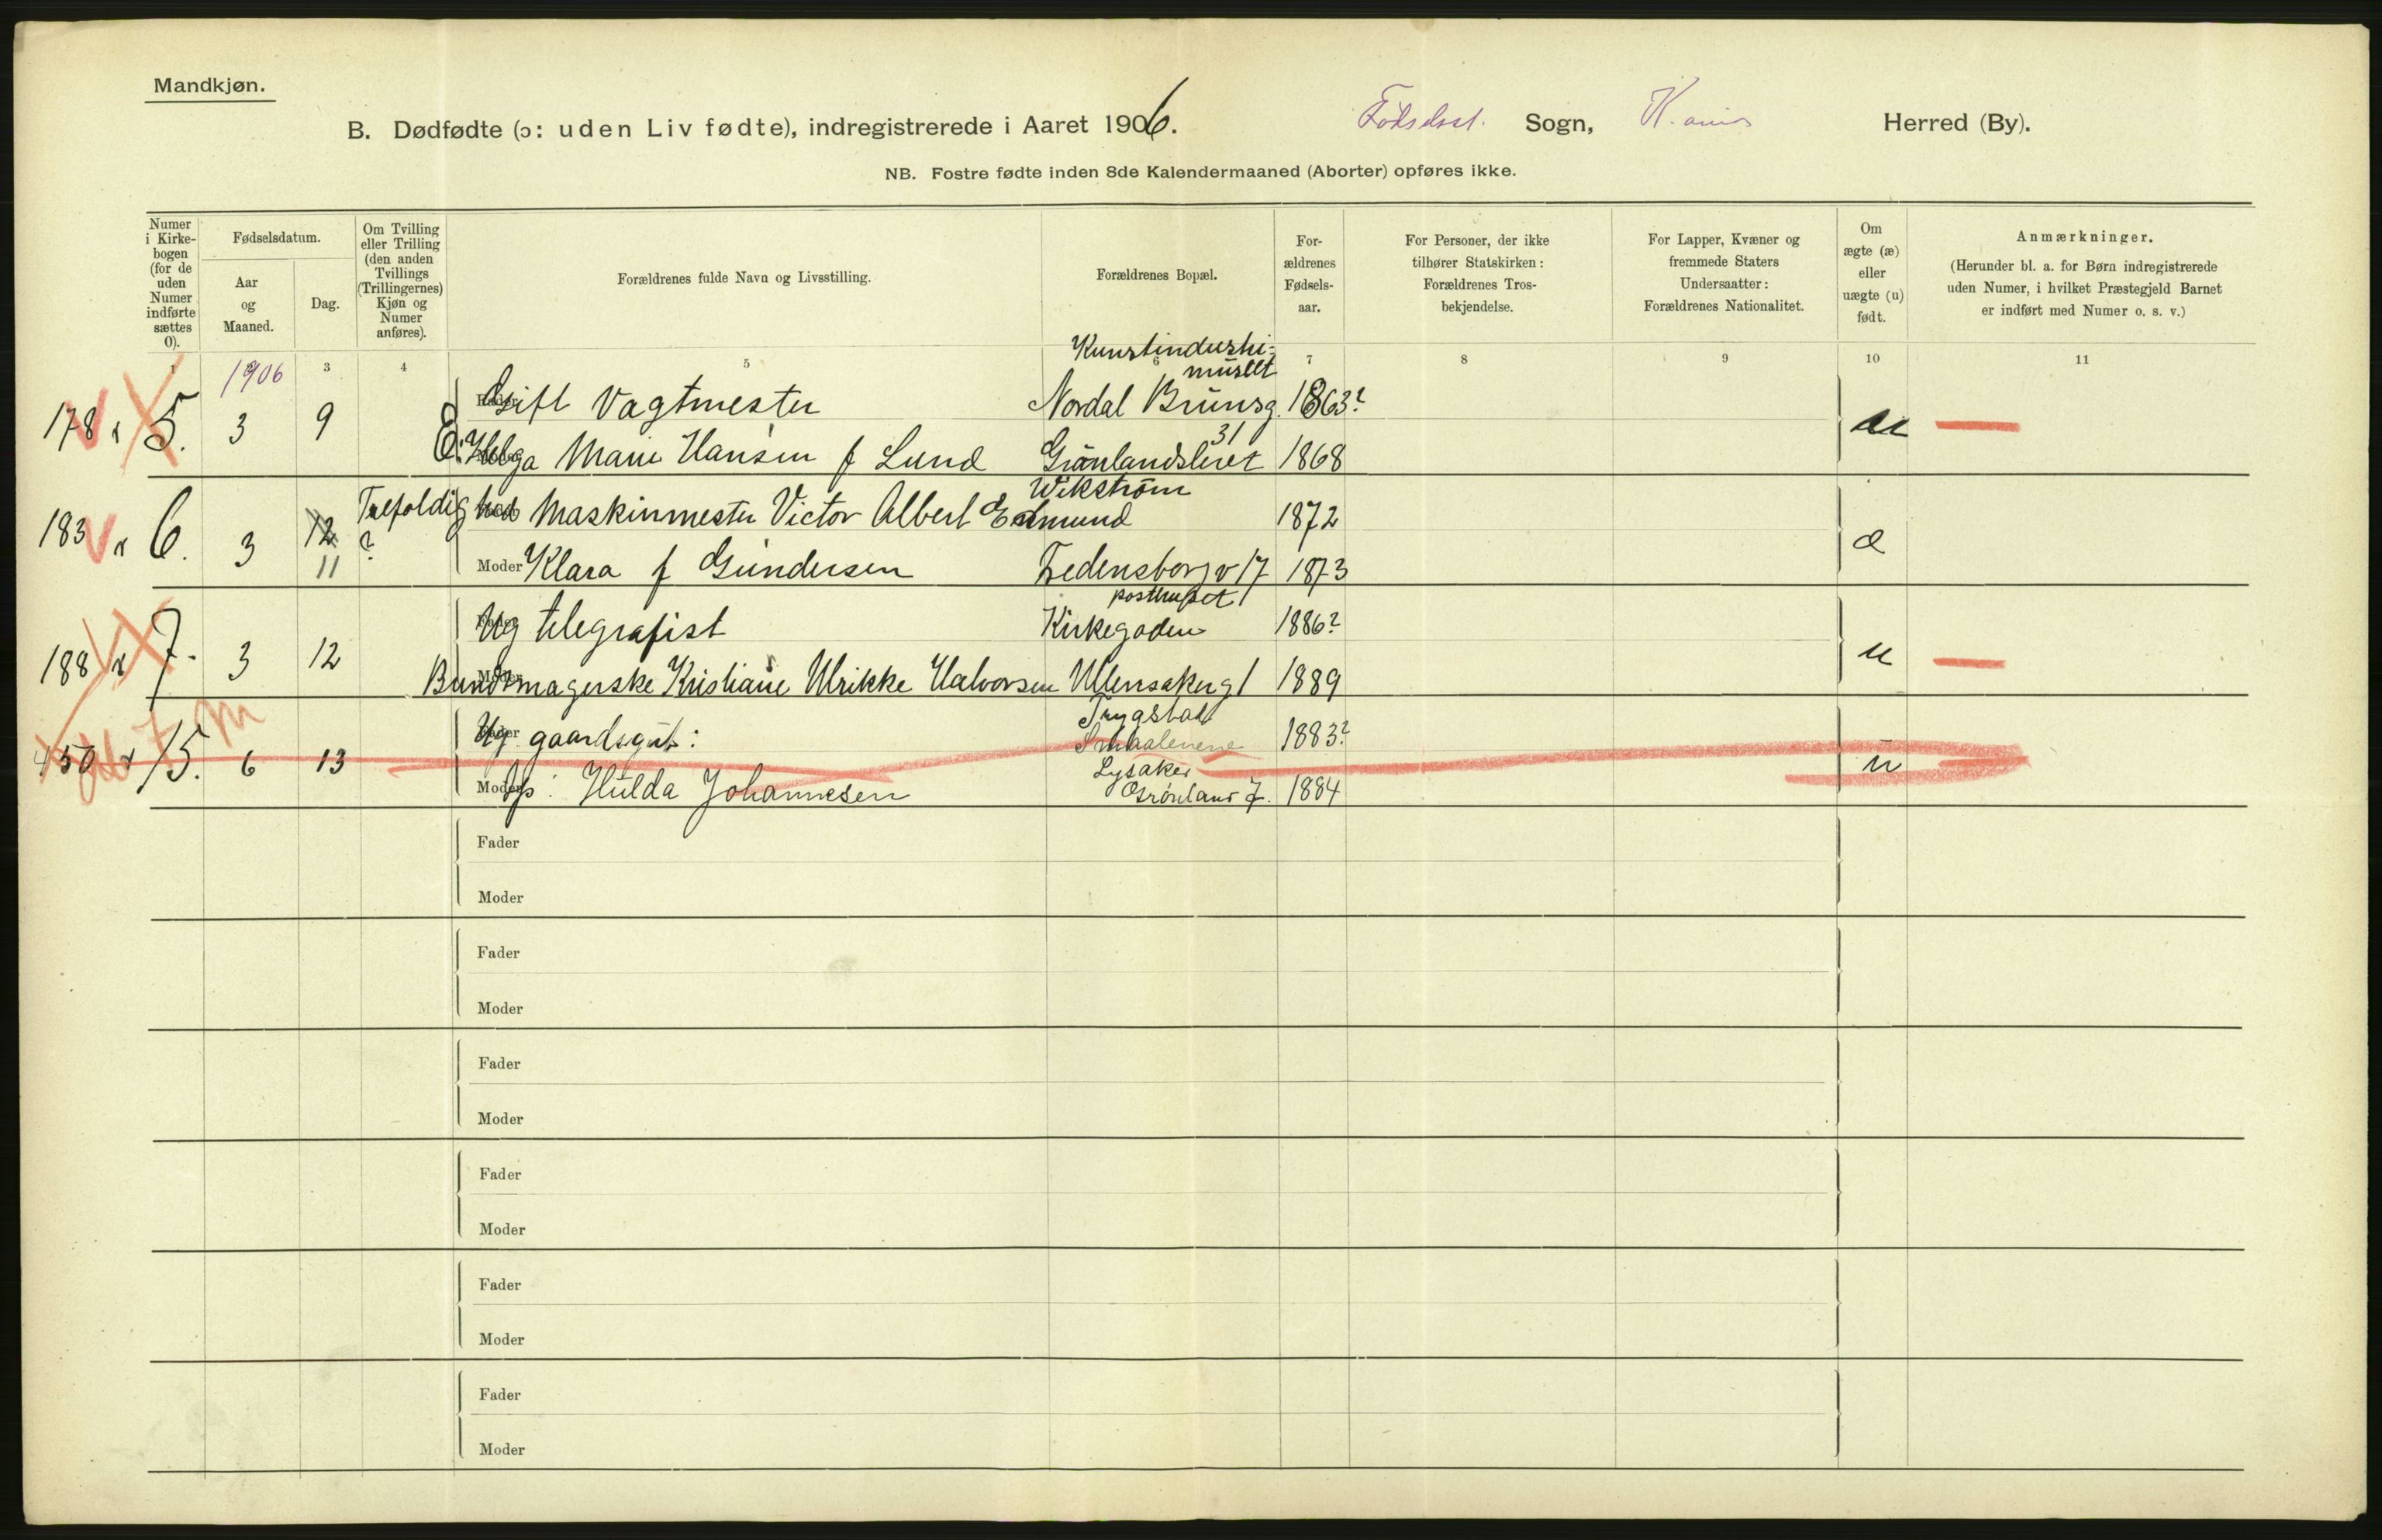 Mandkjøn.
B. Dødfødte (ɔ: uden Liv fødte), indregistrerede i Aaret 1906. Fødselsst. Sogn, K.ania Herred (By).
NB. Fostre fødte inden 8de Kalendermaaned (Aborter) opføres ikke.
Numer i Kirke-bogen (for de uden Numer indførte sættes 0).
Fødselsdatum.
Aar og Maaned.
Dag.
Om Tvilling eller Trilling (den anden Tvillings (Trillingernes) Kjøn og Numer anføres).
Forældrenes fulde Navn og Livsstilling.
Forældrenes Bopæl.
For-ældrenes Fødsels-aar.
For Personer, der ikke tilhører Statskirken: Forældrenes Tros-bekjendelse.
For Lapper, Kvæner og fremmede Staters Undersaatter: Forældrenes Nationalitet.
Om ægte (æ) eller uægte (u) født.
Anmærkninger.
(Herunder bl. a. for Børn indregistrerede uden Numer, i hvilket Præstegjeld Barnet er indført med Numer o. s. v.)
1 3 4 5 6 7 8 9 10 11
1906
Kunstindustri-
museet
178 x 5. 3 9 Fader Gift Vagtmester Nordal Brunsg. 1863? u
31
E. Moder Helga Marie Hansen f Lund Grønlandsleret 1868
Wikstrøm
183 x 6. 3 12 Trefoldighed Fader Maskinmester Victor Albert Edmund 1872 æ
11 ? Moder Klara f Gundersen Fredensborgv 17 1873
posthuset
188 x 7. 3 12 Fader Ug telegrafist Kirkegaden 1886? u
Moder Buntmagerske Kristiane Ulrikke Halvorsen Ullensakerg 1 1889
Trygstad
450 x 15. 6 13 Fader Ug gaardsgut: Smaalenene 1883? u
Lysaker
Moder Tjp: Hulda Johannesen Grønland 7. 1884
Fader
Moder
Fader
Moder
Fader
Moder
Fader
Moder
Fader
Moder
Fader
Moder